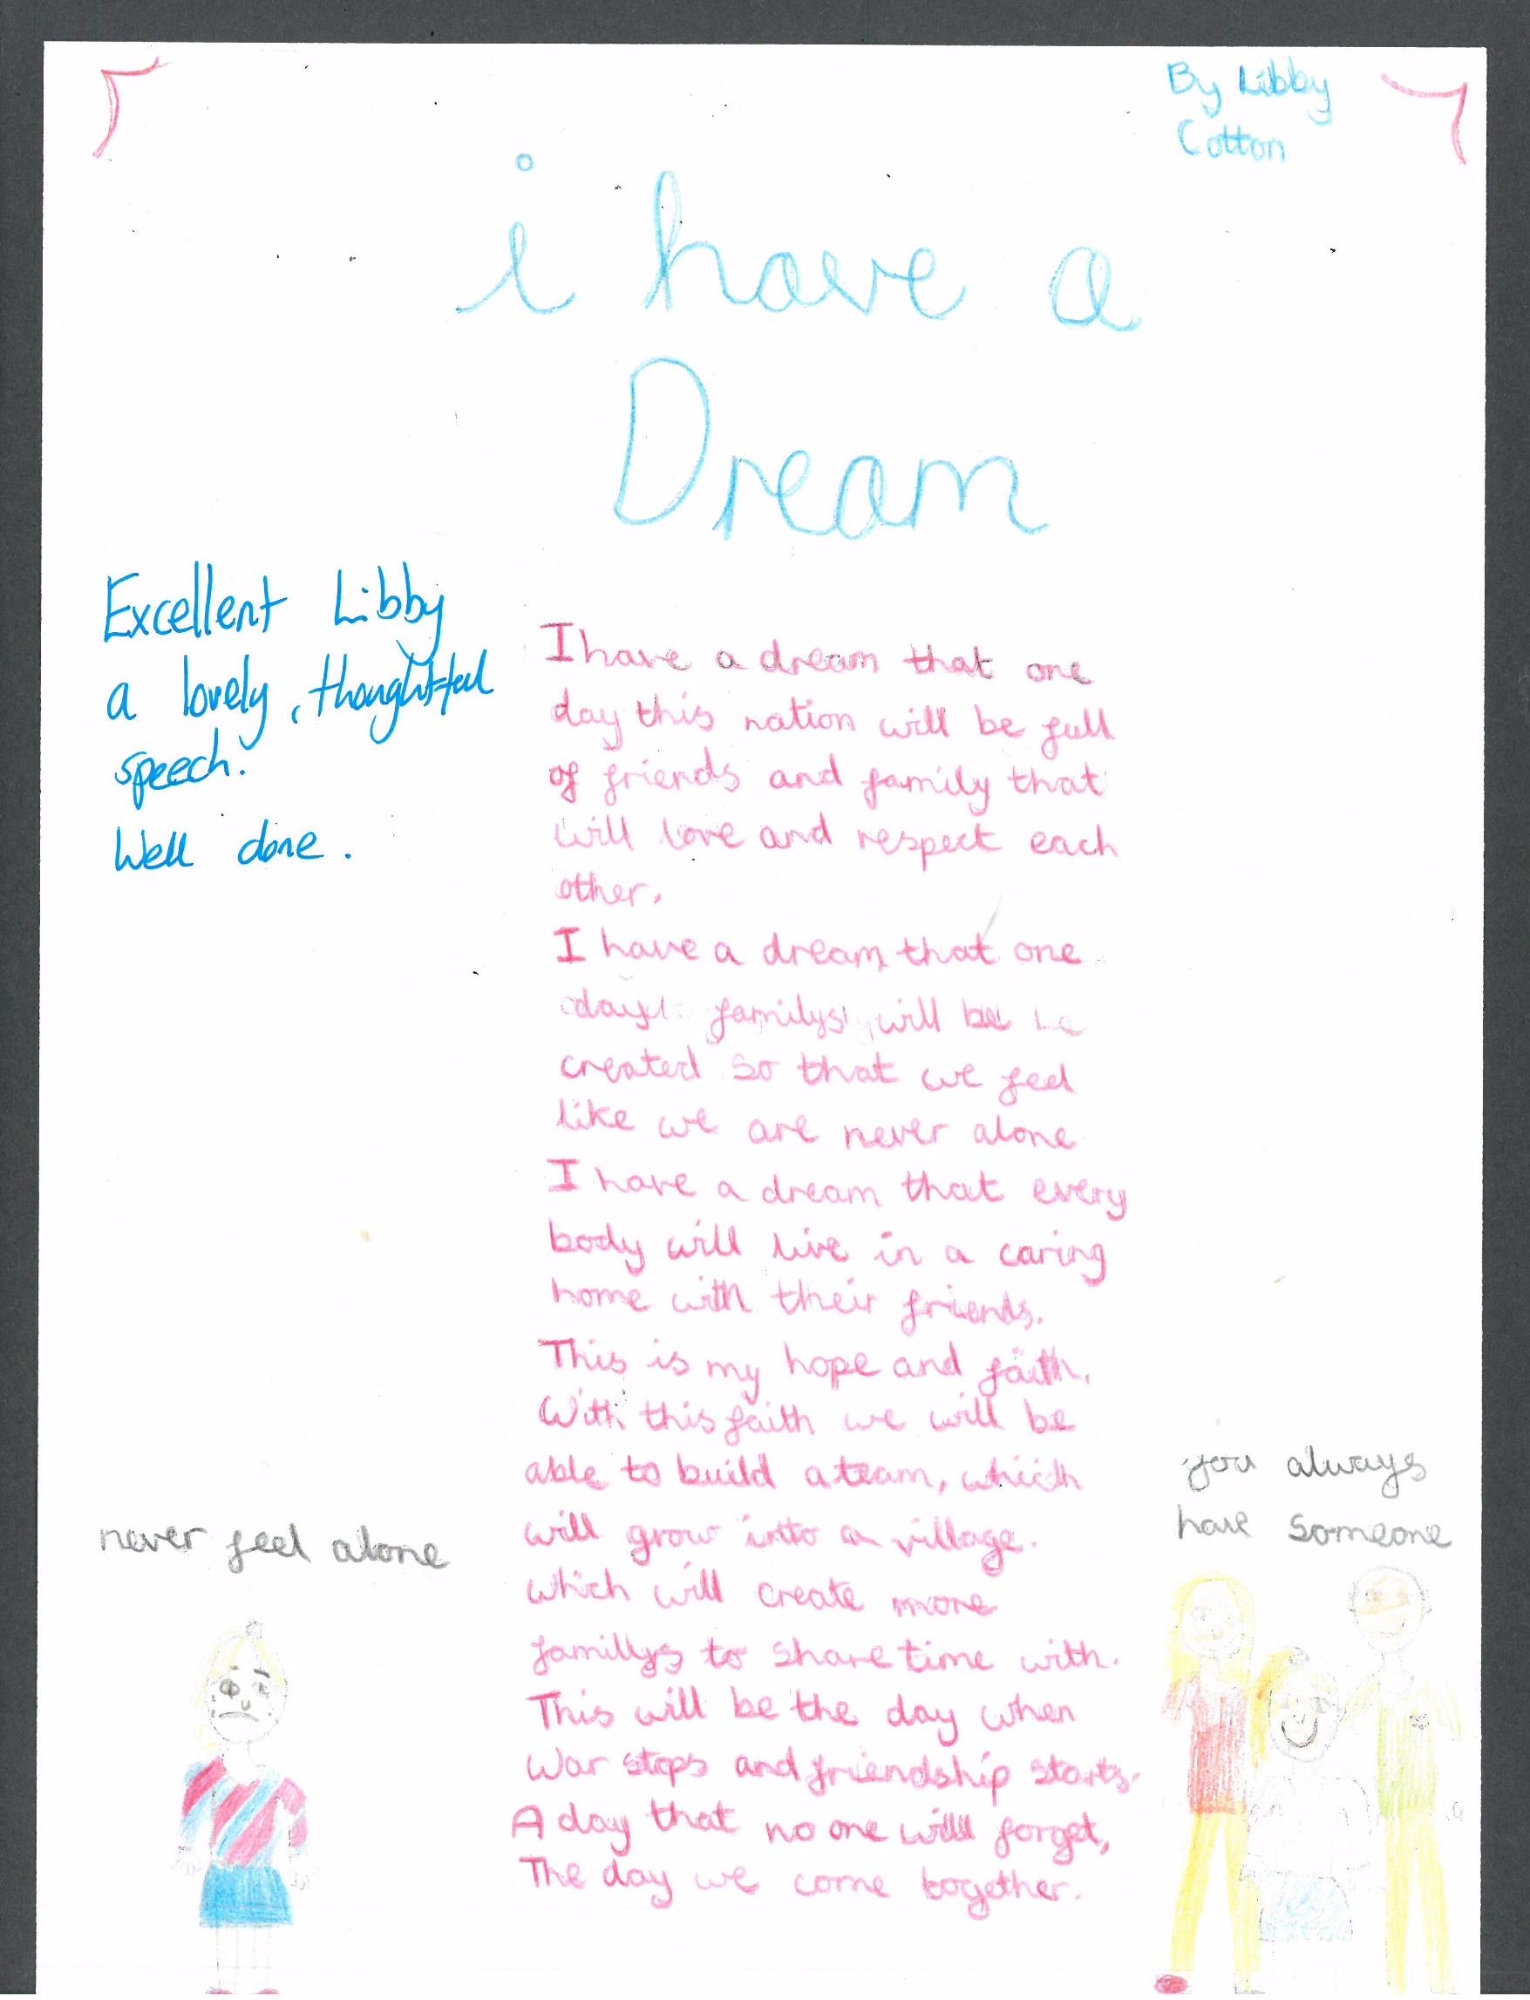 By Libby
Cotton
i have a
Dream
Excellent Libby
a lovely, thoughtful
speech.
Well done.
I have a dream that one
day this nation will be full
of friends and family that
will love and respect each
other.
I have a dream that one
day familys will be
created so that we feel
like we are never alone
I have a dream that every
body will live in a caring
home with their friends.
This is my hope and faith.
With this faith we will be
able to build a team, which
will grow into a village.
which will create more
famillys to share time with.
This will be the day when
War stops and friendship starts.
A day that no one will forget,
The day we come together.
never feel alone
you always
have someone